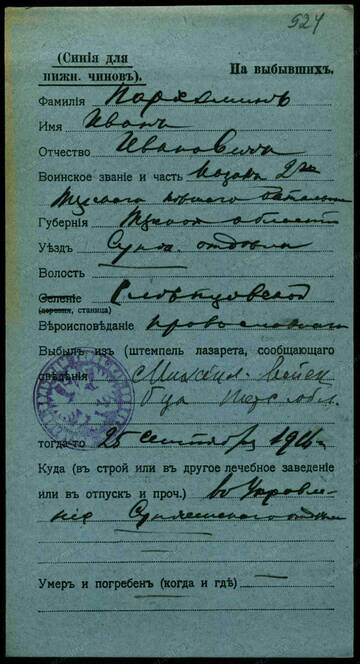 524
(Синія для
нижн. чиновъ).
На выбывшихъ.
Фамилія Пархоменко
Имя Иванъ
Отчество Ивановичъ
Воинское званіе и часть казакъ 2го
Терского пѣшаго батальона
Губернія Терской области
Уѣздъ Сунж. отдѣла
Волость
Селеніе Слѣпцовской
(деревня, станица)
Вѣроисповѣданіе православнаго
Выбылъ изъ (штемпель лазарета, сообщающаго
свѣдѣнія)
Терс. обл.
тогда-то 25 сентября 191
Куда (въ строй или въ другое лечебное заведеніе
или въ отпускъ и проч.) во Управле-
ніе Сунженскаго отдѣла
Умеръ и погребенъ (когда и гдѣ)